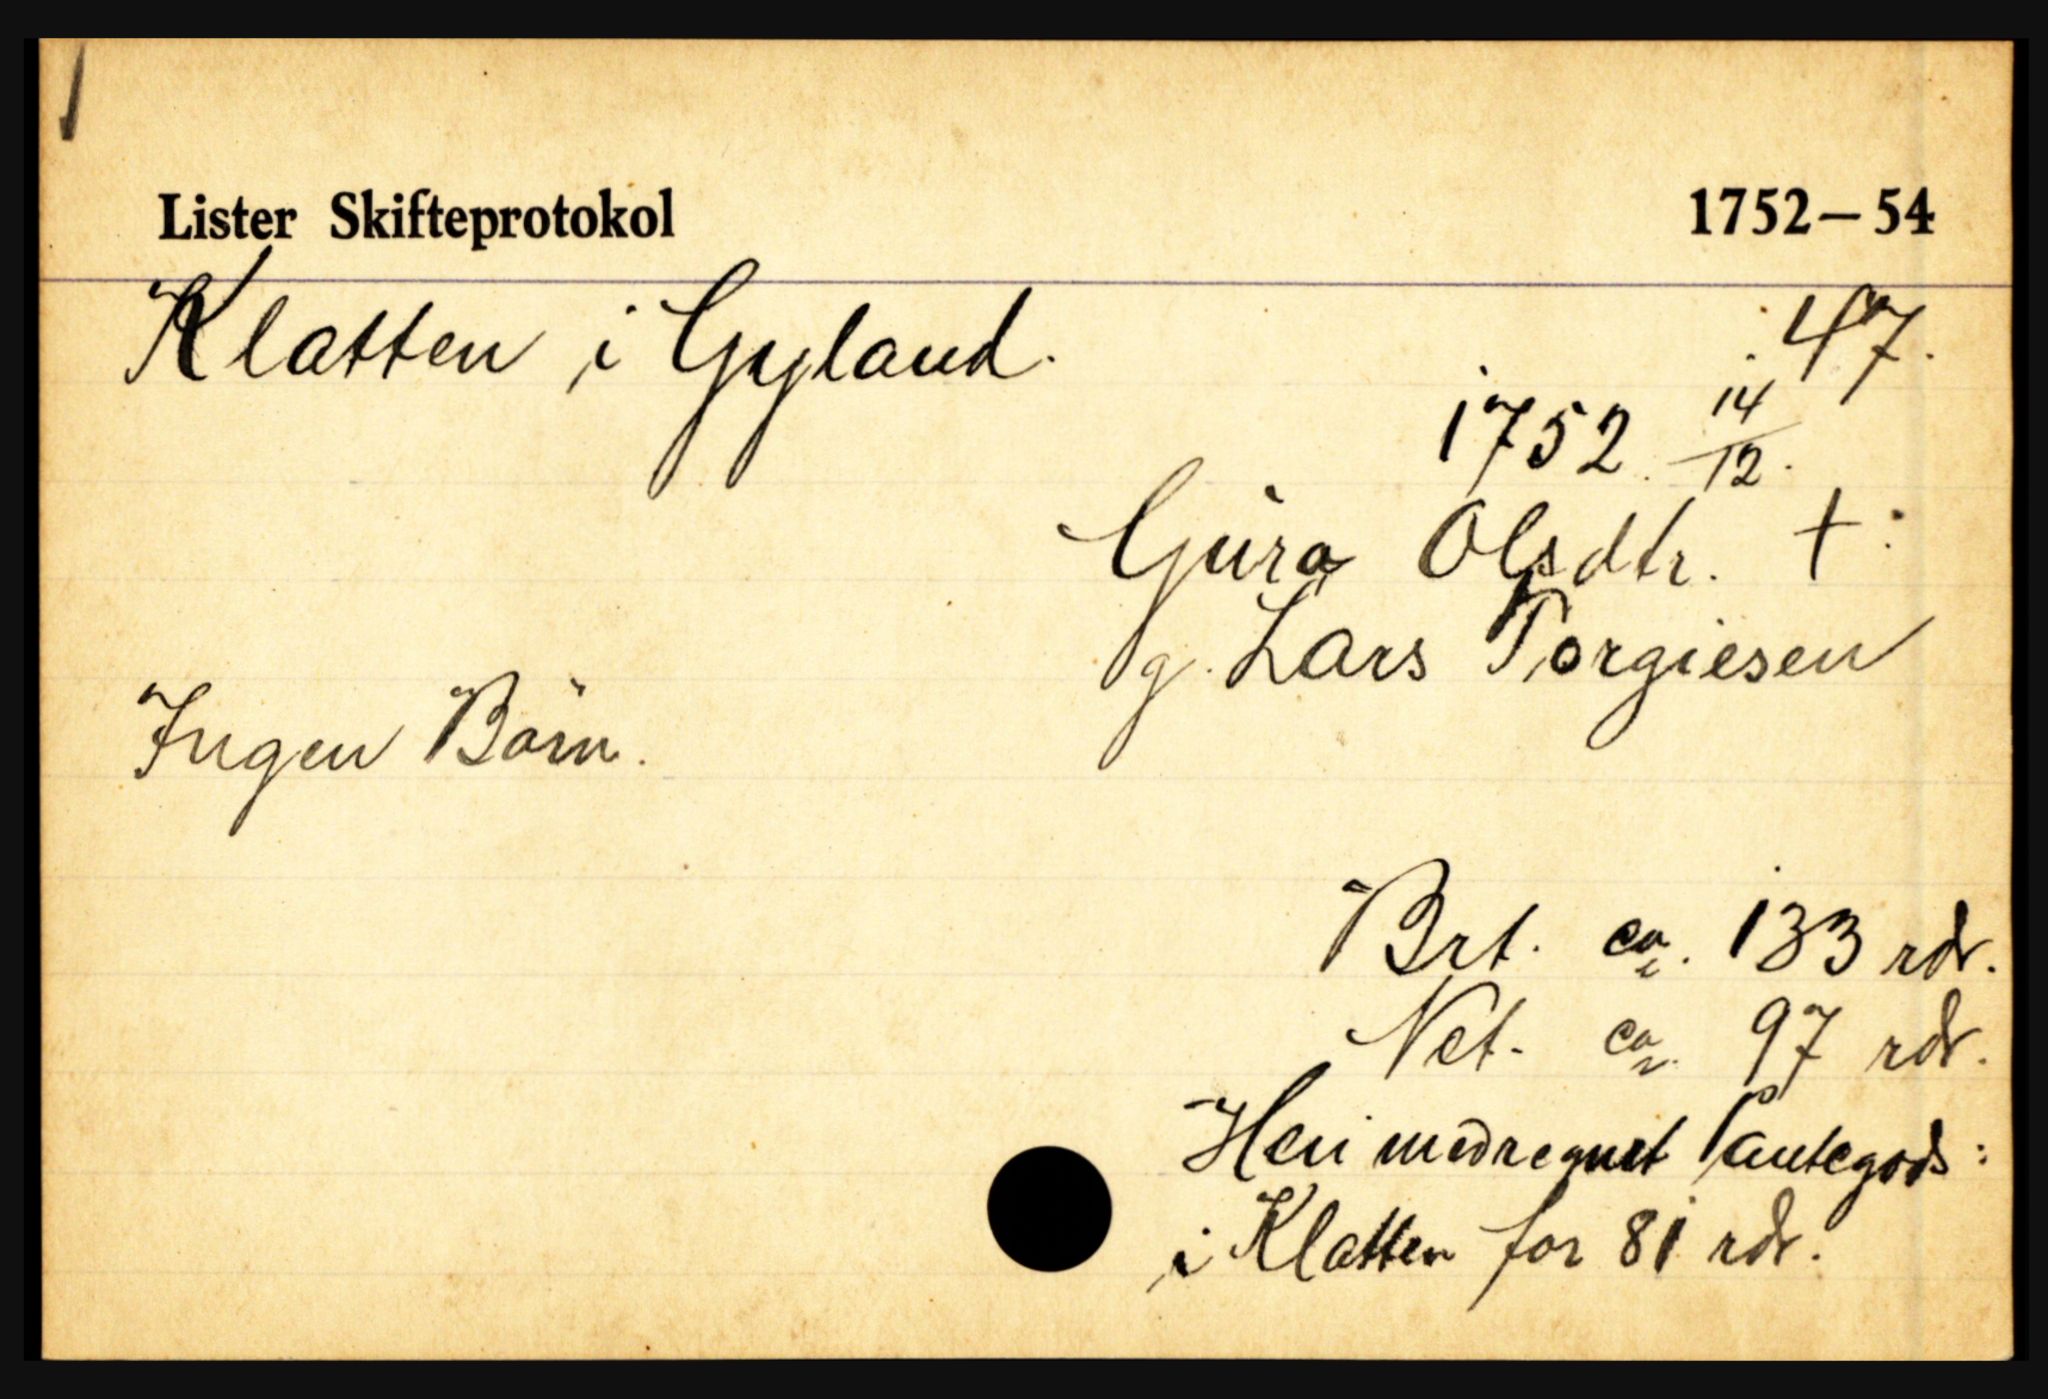 Lister Skifteprotokol 1752–54
Klatten i Gyland. 47.
1752 14/12.
Gura Olsdtr. †:
g. Lars Torgiesen
Ingen Börn.
Brt. ca. 133 rdr.
Net. ca. 97 rdr.
Heri medregnet Pantegods:
i Klatten for 81 rdr.